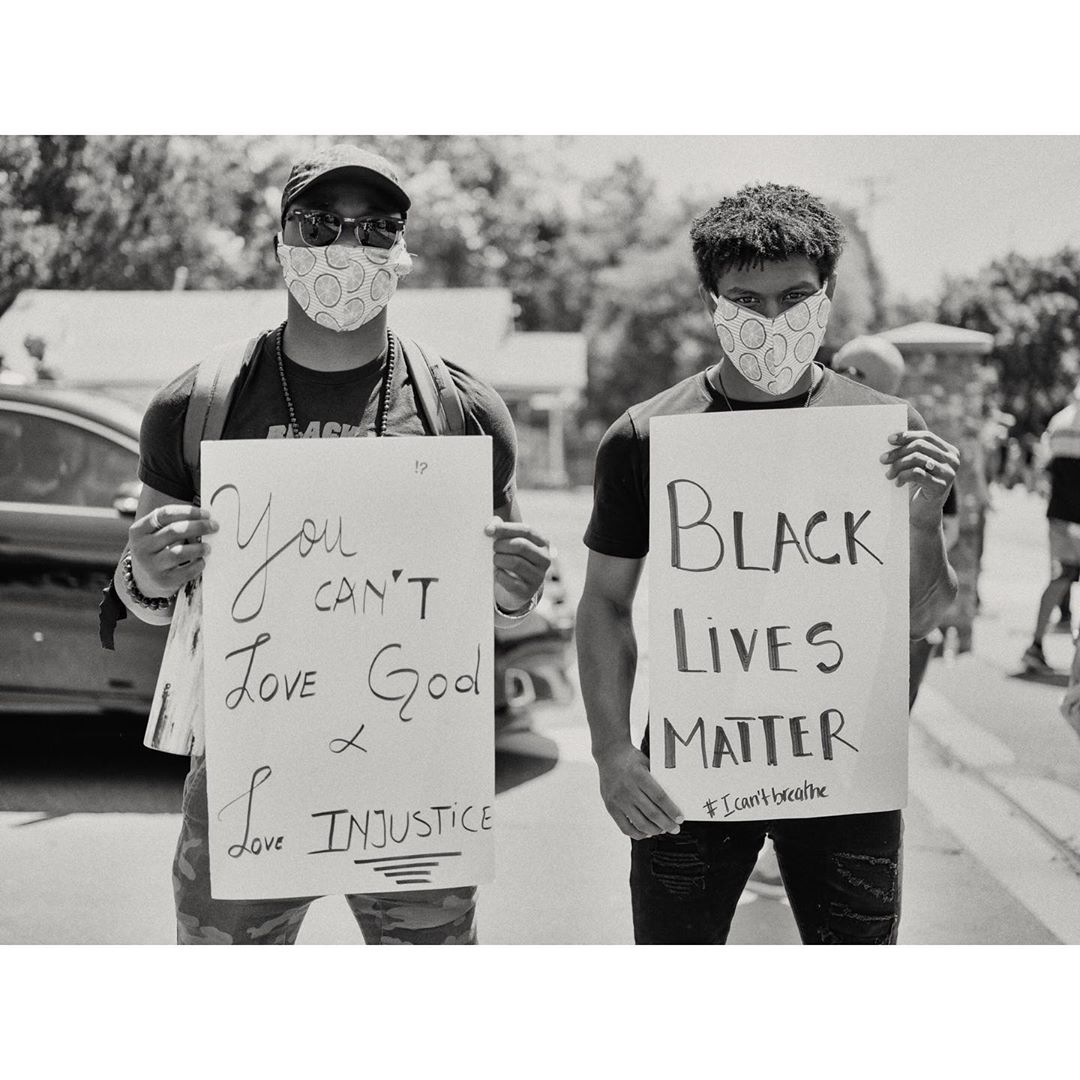 BLACK
!?
You
CAN'T
Love God
&
Love INJUSTICE
BLACK
LIVES
MATTER
#Ican'tbreathe